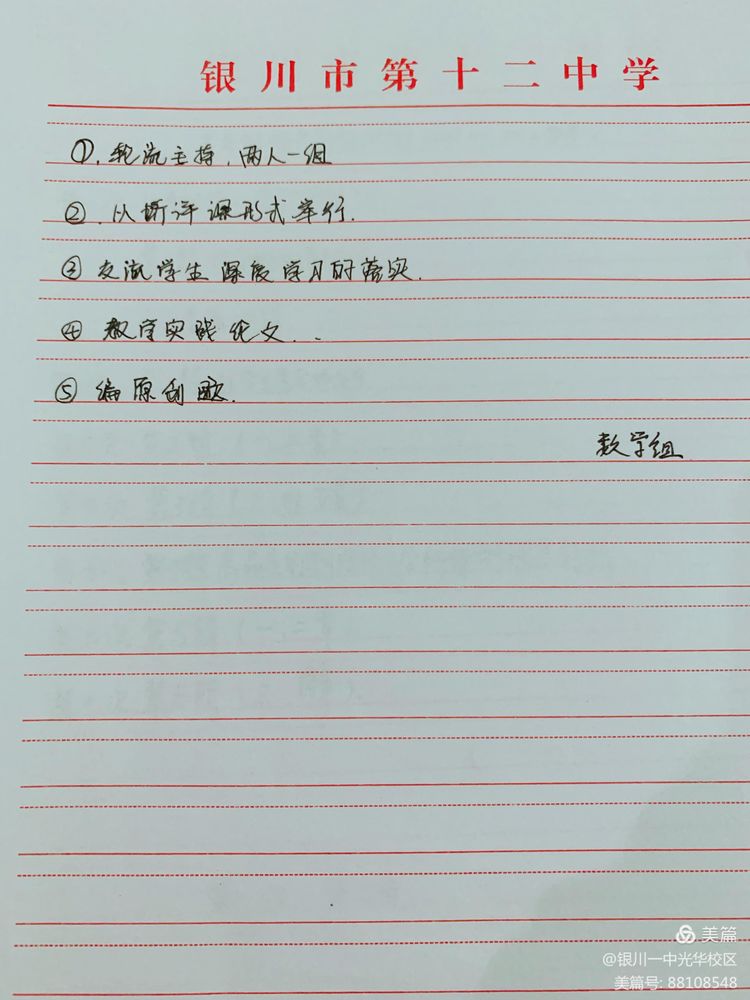 银川市第十二中学
①.轮流主持,两人一组
②.以听评课形式举行.
③交流学生深度学习的落实.
④教学实践论文...
⑤编原创歌.
数学组
美篇
@银川一中光华校区
美篇号: 88108548